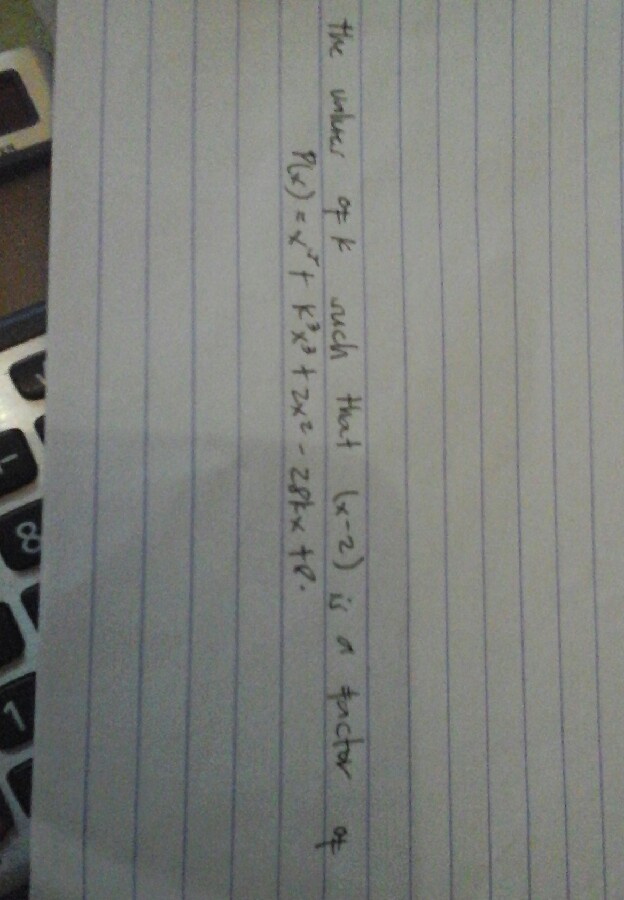 the values of k such that (x-2) is a factor of
P(x) = x⁵ + k³x³ + 2x² - 28kx + 8.
8
1